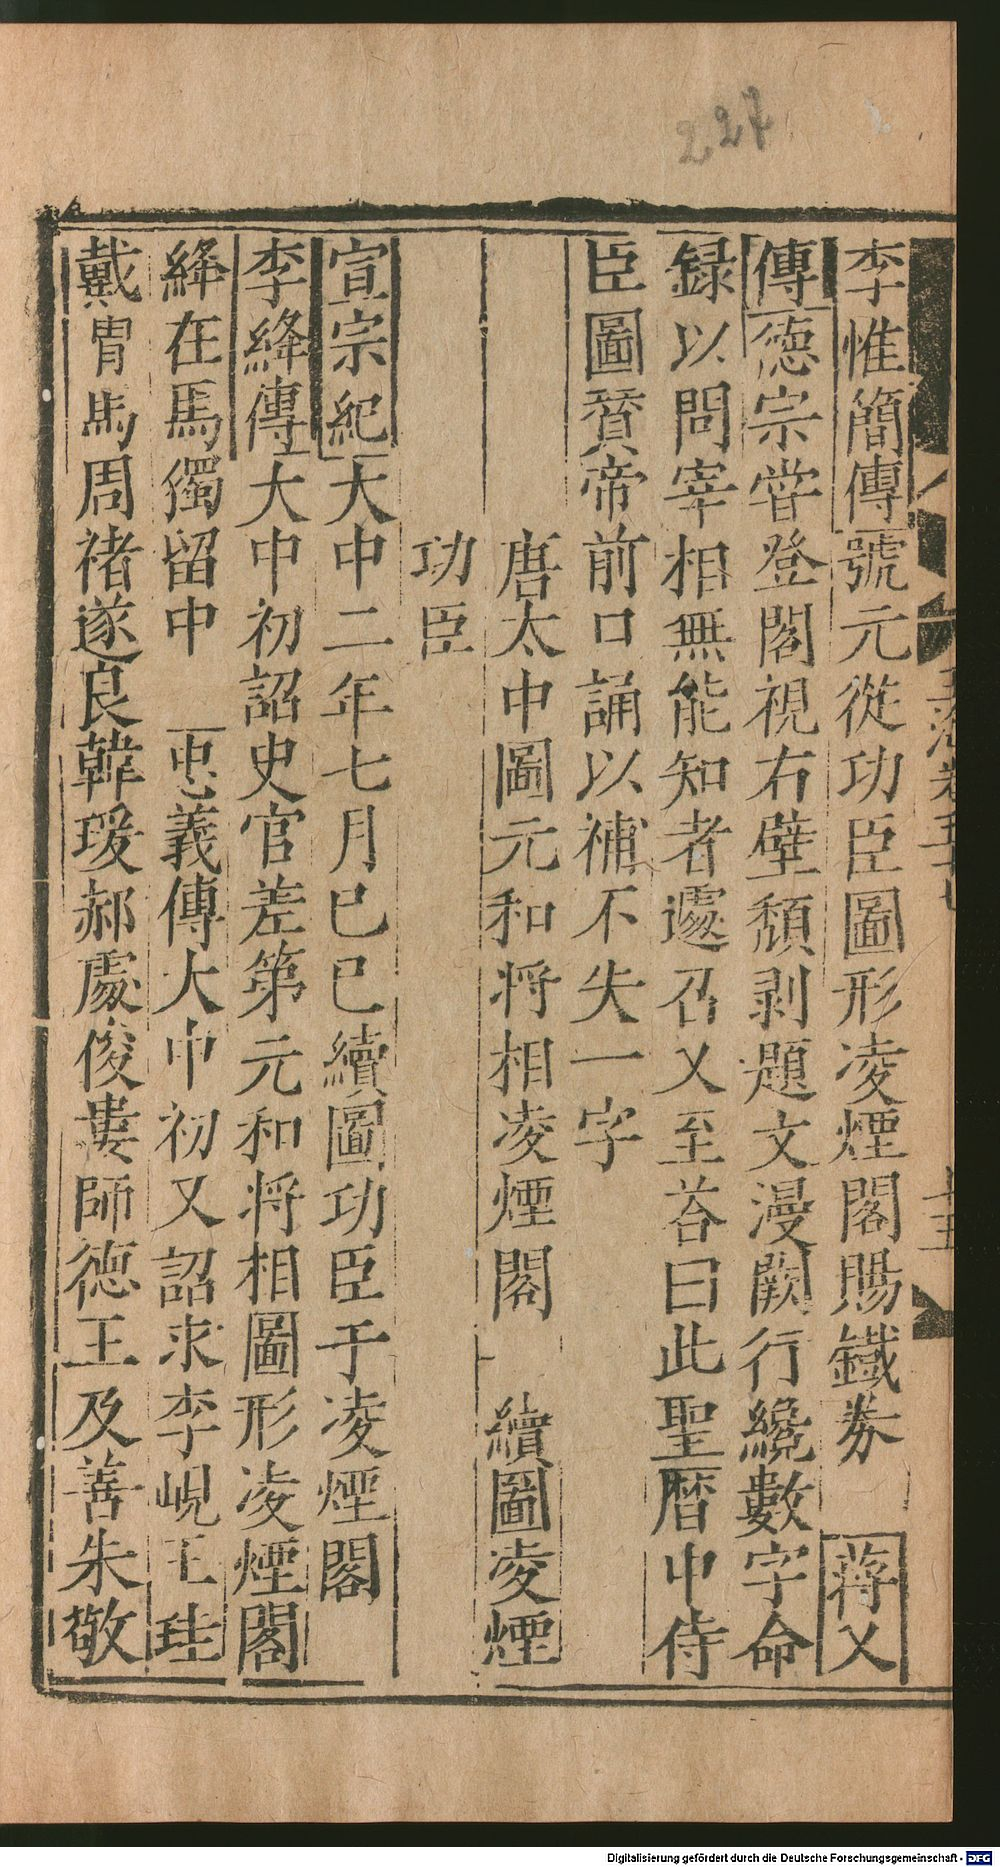 227
李惟簡傳號元從功臣圖形凌煙閣賜鐵券 蔣乂
傳德宗嘗登閣視右壁頽剥題文漫闕行纔數字命
録以問宰相無能知者遽召乂至荅曰此聖曆中侍
臣圖賛帝前口誦以補不失一字
唐太中圖元和将相凌煙閣 續圖凌煙
功臣
宣宗紀大中二年七月巳巳續圖功臣于凌煙閣
李絳傳大中初詔史官差第元和将相圖形凌煙閣
絳在焉獨留中 忠義傳大中初又詔求李峴王珪
戴胄馬周禇遂良韓瑗郝處俊婁師德王及善朱敬
十五
Digitalisierung gefördert durch die Deutsche Forschungsgemeinschaft - DFG